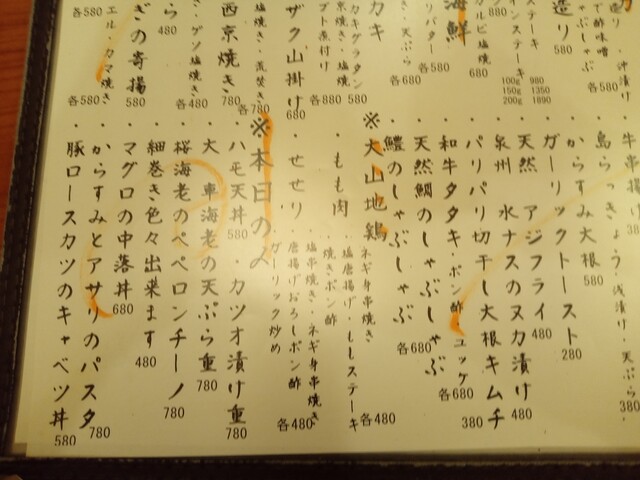 牛串揚げ
島らっきょう・浅漬け・天ぷら
各380
からすみ大根 580
ガーリックトースト 280
天然 アジフライ 480
泉州 水ナスのヌカ漬け 480
パリパリ切干し大根キムチ 380
和牛タタキ・ポン酢 ユッケ 各680
天然鯛のしゃぶしゃぶ
鱧のしゃぶしゃぶ 各680
※大山地鶏
ネギ身串焼き
・もも肉 塩唐揚げ・ももステーキ
焼きポン酢
各480
・せせり 塩串焼き・ネギ身串焼き
唐揚げおろしポン酢
ガーリック炒め
各480
※本日の〆
・ハモ天丼 580
・カツオ漬け重 780
・大 車海老の天ぷら重 780
・桜海老のペペロンチーノ 780
・細巻き色々出来ます 480
・マグロの中落丼 680
・からすみとアサリのパスタ 780
・豚ロースカツのキャベツ丼 580
造り
で酢味噌
ゃぶしゃぶ
580
ステーキ
インステーキ
100g 980
150g 1350
200g 1890
海鮮
カルビ塩焼
680
580
カキ
・天ぷら
各680
カキグラタン
各880
各580
ザク山掛け 680
塩焼き・煮焚き
西京焼き 780
各780
・ゲソ塩焼き
各480
ら 480
ぎの寄揚 580
エル・カマ焼き
各580
各580